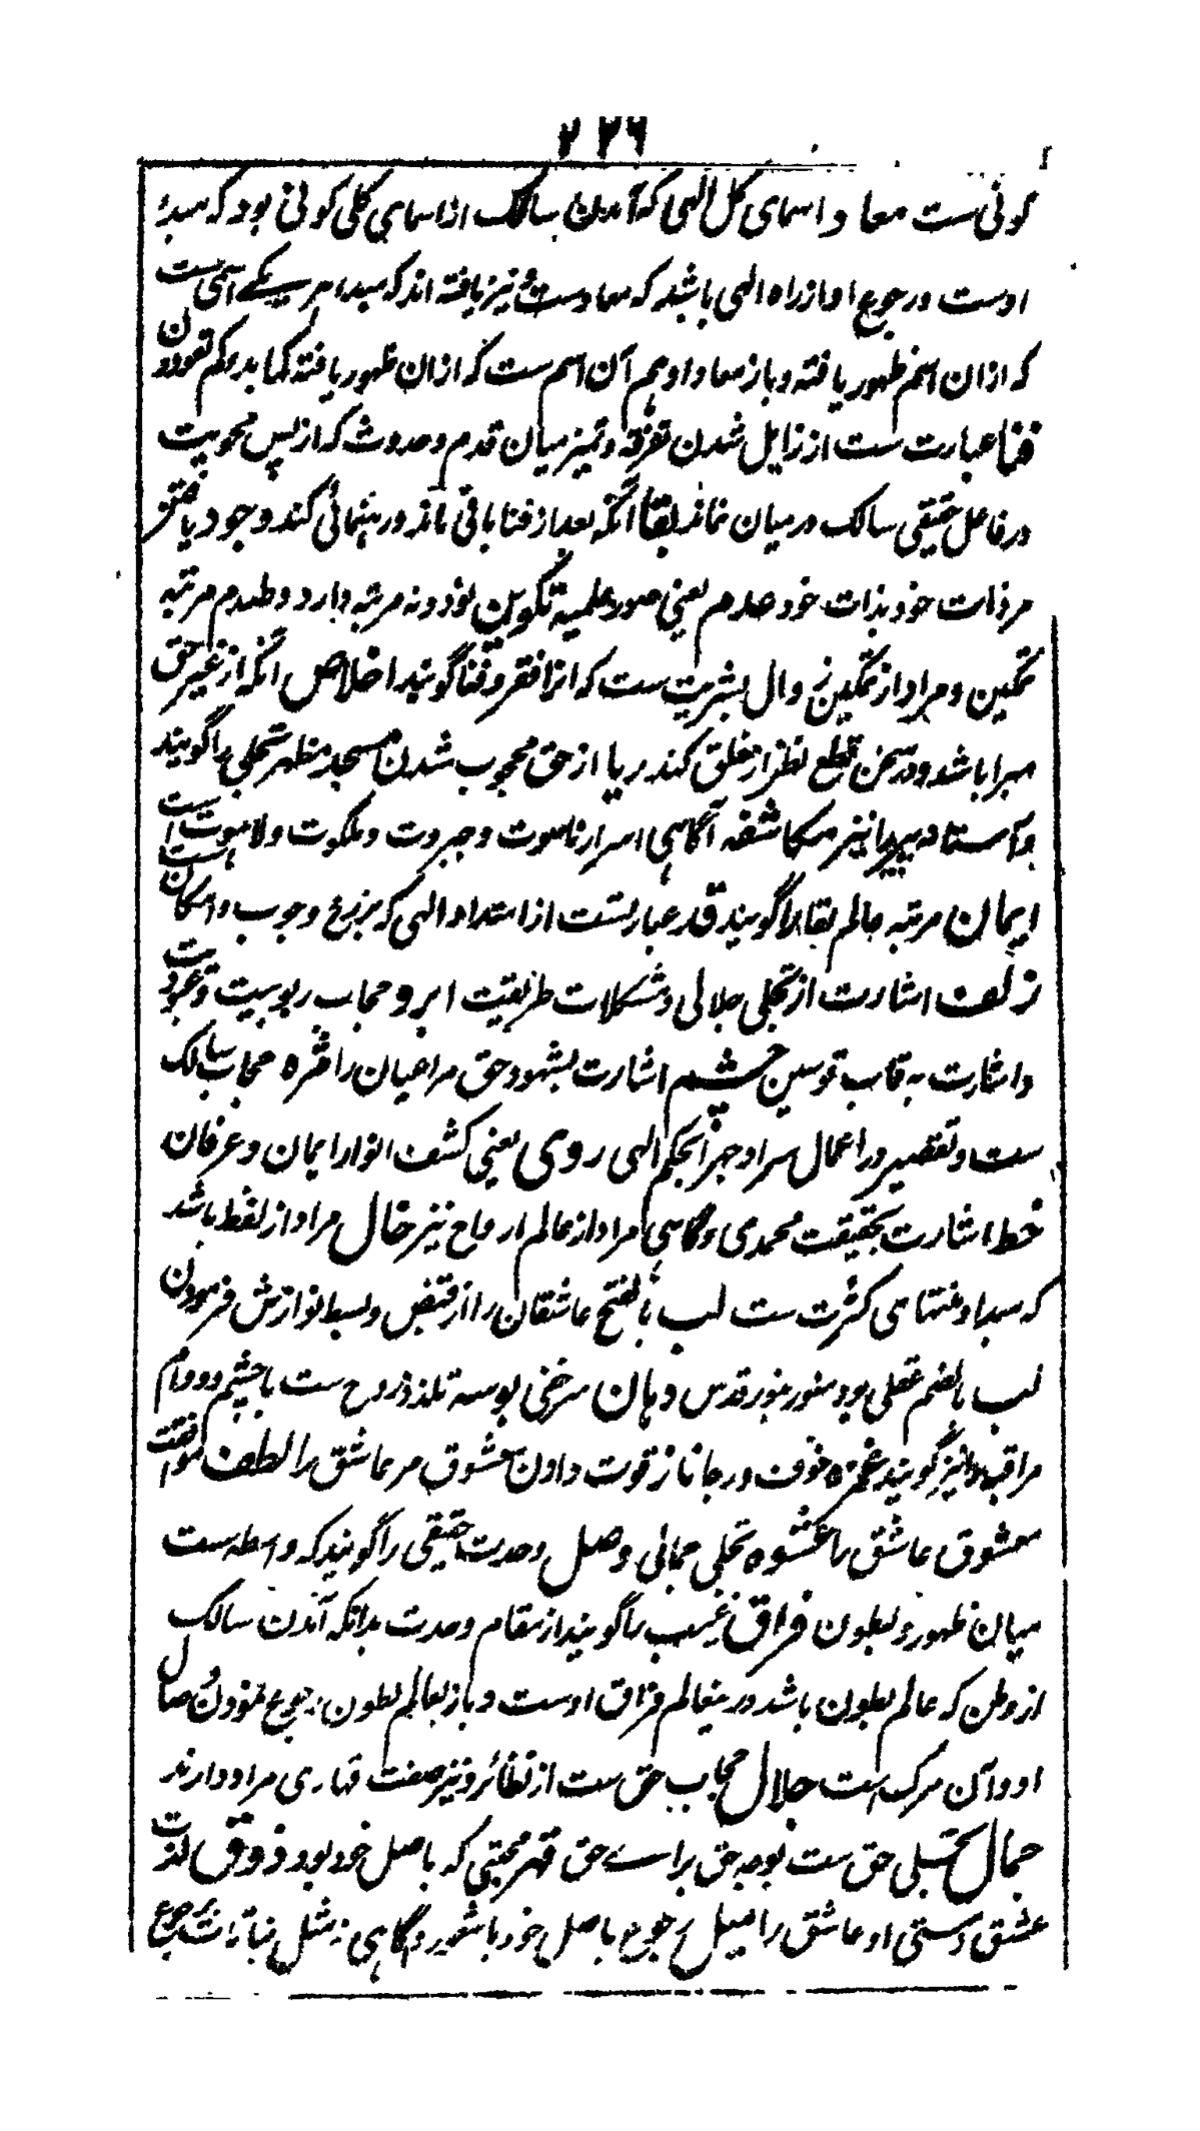 ۲۲۶
کونی ست معاد اسمای کل الٰہی که آمدن سالک از اسمایی کلی کونی بود که مبدء
اوست و رجوع او از راه الٰہی باشد که معاد اوست و نیز یافته اند که مبداء هر یکے اسمی ست
که از ان اسم ظهور یافته و باز معاد او هم آن اسم ست که از ان ظهور یافته کما بدءکم تعودون
فنا عبارت ست از زایل شدن تفرقه و تمیز میان قدم و حدوث که از پس محویت
در فاعل حقیقی سالک در میان نماند بقا آنکه بعد از فنا باقی ماند و رهنمائی کند وجود یافتن
مر ذات خود بذات خود عدم یعنی صور علمیه تکوین نود و نه مرتبه دارد وطدم مرتبه
تمکین و مراد از تمکین زوال بشریت ست که انرا فقر و فنا گویند اخلاص آنکه از غیر حق
مبرا باشد و در سخن قطع نظر از خلق کند ریا از حق محجوب شدن مسجد مظهر تجلی را گویند
و آستانه پیر را نیز مکاشفه آگاهی اسرار ناسوت و جبروت و ملکوت و لاهوت است
ایمان مرتبه عالم بقا را گویند قد عبارتست از امتداد الٰہی که برزخ وجوب و امکان ست
زلف اشارت از تجلی جلالی و مشکلات طریقت ابرو حجاب ربوبیت و عبودیت
و اشارت به قاب قوسین چشم اشارت بشهود حق مر اعیان را مژه حجاب سالک
ست و تقصیر در اعمال سرا و جهرا بحکم الٰہی روی یعنی کشف انوار ایمان و عرفان
خط اشارت بحقیقت محمدی و گاهی مراد از عالم ارواح نیز خال مراد از نقطه باشد
که مبدا و منتهای کثرت ست لب بالفتح عاشقان را از قبض و بسط نوازش فرمودن
لب بالضم عقلی بود منور بنور قدس دهان سرخی بوسه تلذذ روح ست با جسم و دوام
مراقبه را نیز گویند غمزه خوف و رجا ناز قوت دادن معشوق مر عاشق را لطف موافقت
معشوق عاشق را عشوه تجلی جمالی وصل وحدت حقیقی را گویند که واسطه ست
میان ظهور و بطون فراق غیبت را گویند از مقام وحدت بدانکه آمدن سالک
از وطن که عالم بطون باشد درینعالم فراق اوست و باز بعالم بطون رجوع نمودن وصال
او و آن مرگ است جلال حجاب حق ست از نظائر و نیز صفت قهاری مراد دارند
جمال تجلی حق ست بوجه حق براے حق قهر محبتی که باصل خود بود ذوق لذت
عشق و مستی او عاشق را میل رجوع باصل خود باشد و گاهی بمثل نباتات رجوع